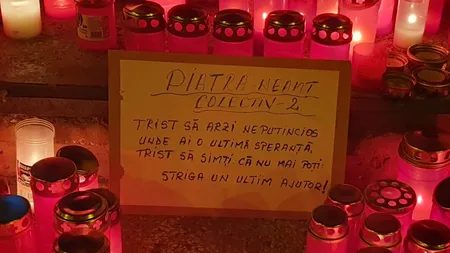 PIATRA-NEAMȚ
COLECTIV-2
TRIST SĂ ARZI NEPUTINCIOS
UNDE AI O ULTIMĂ SPERANȚĂ,
TRIST SĂ SIMȚI CĂ NU MAI POȚI
STRIGA UN ULTIM AJUTOR!